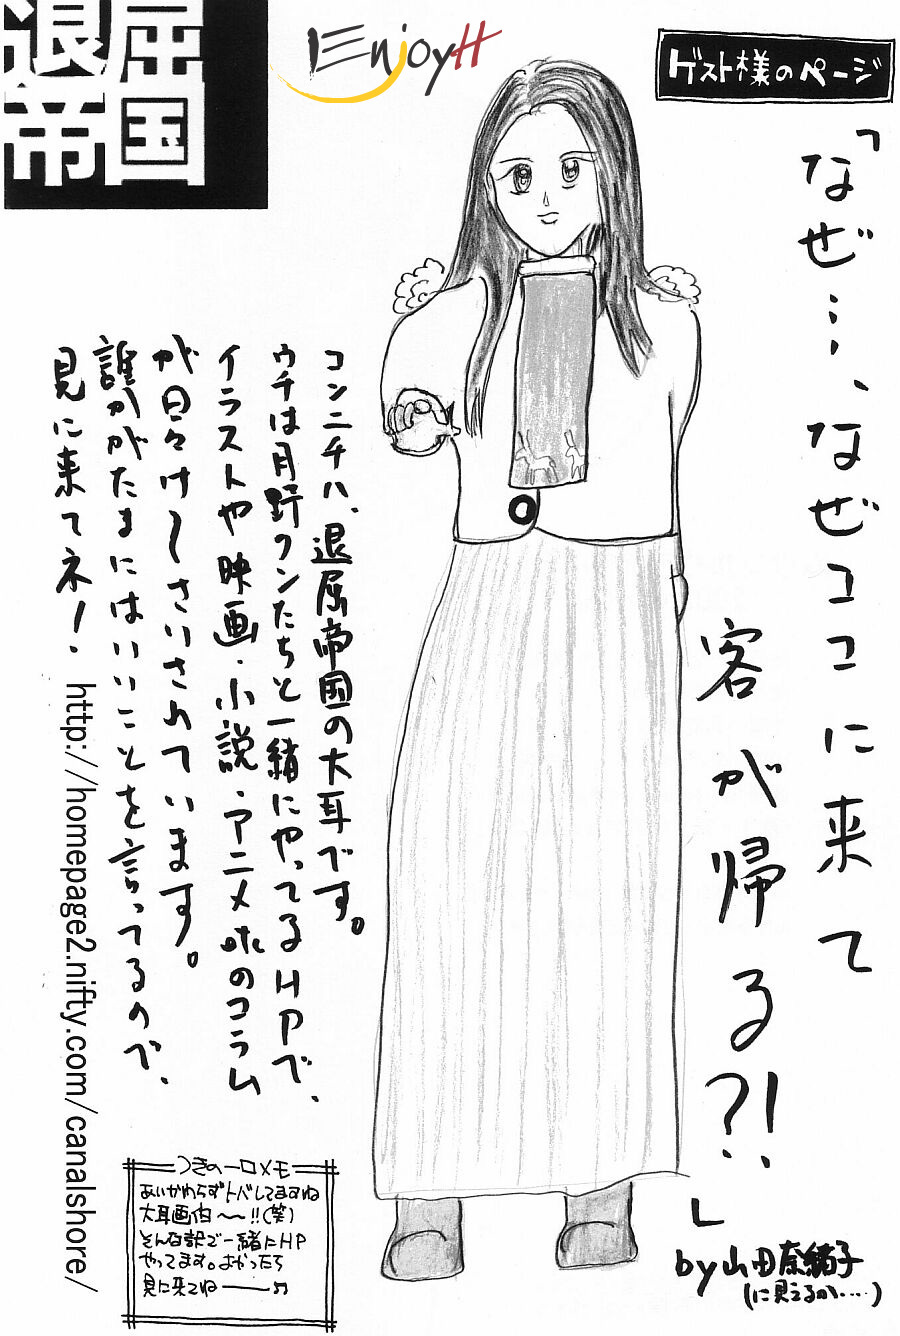 退屈
帝国
EnjoyH
ゲスト様のページ
「なぜ・・・、なぜココに来て
客が帰る?!」
by山田奈緒子
(に見えるか・・・・)
コンニチハ、退屈帝国の大耳です。
ウチは月野クンたちと一緒にやってるHPで、
イラストや映画・小説・アニメetcのコラム
が日々け〜さいされています。
誰かがたまにはいいことを言ってるので、
見に来てネ!
http://homepage2.nifty.com/canalshore/
つきの一口メモ
あいかわらずトバしてますね
大耳画伯〜〜!!(笑)
そんな訳で一緒にHP
やってます。よかったら
見に来てね――♫